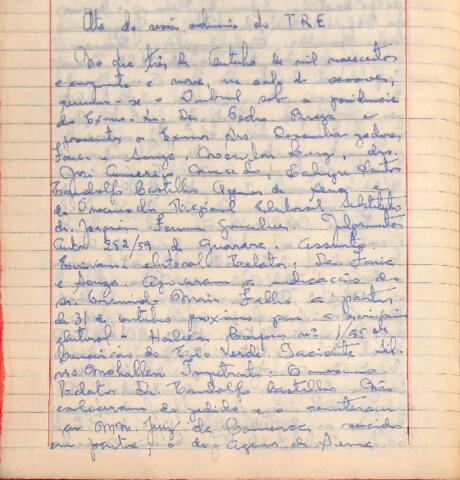 Ata da sessão ordinaria do TRE
No dia três de outubro de mil novecentos
e cinquenta e nove, na sala de sessões,
reuniu-se o Tribunal sob a presidencia
do Exmo. Sr. Des. Pedro Braga e
presentes os Exmos Srs. Desembargadores
Faria e Souza,
José Americo Macedo,
Randolfo Castilho
do Procurador Regional Eleitoral Substituto
dr. Joaquim Ferreira Gonçalves. Julgamentos
Autos 292/59 de Guaxara. Assunto:
Escrivania eleitoral Relator: Des. Faria
e Souza. Aprovaram a indicação do
sr. Orvando Morais Filho a partir
de 31 de outubro proximo para a escrivania
eleitoral. Habeas Corpus nº 1/55 de
Conceição do Rio Verde. Paciente
Impetrante: O mesmo.
Relator Dr. Randolfo Castilho. Não
conheceram do pedido e o remeteram
ao MM. Juiz da Comarca, vencidos
em parte, o de